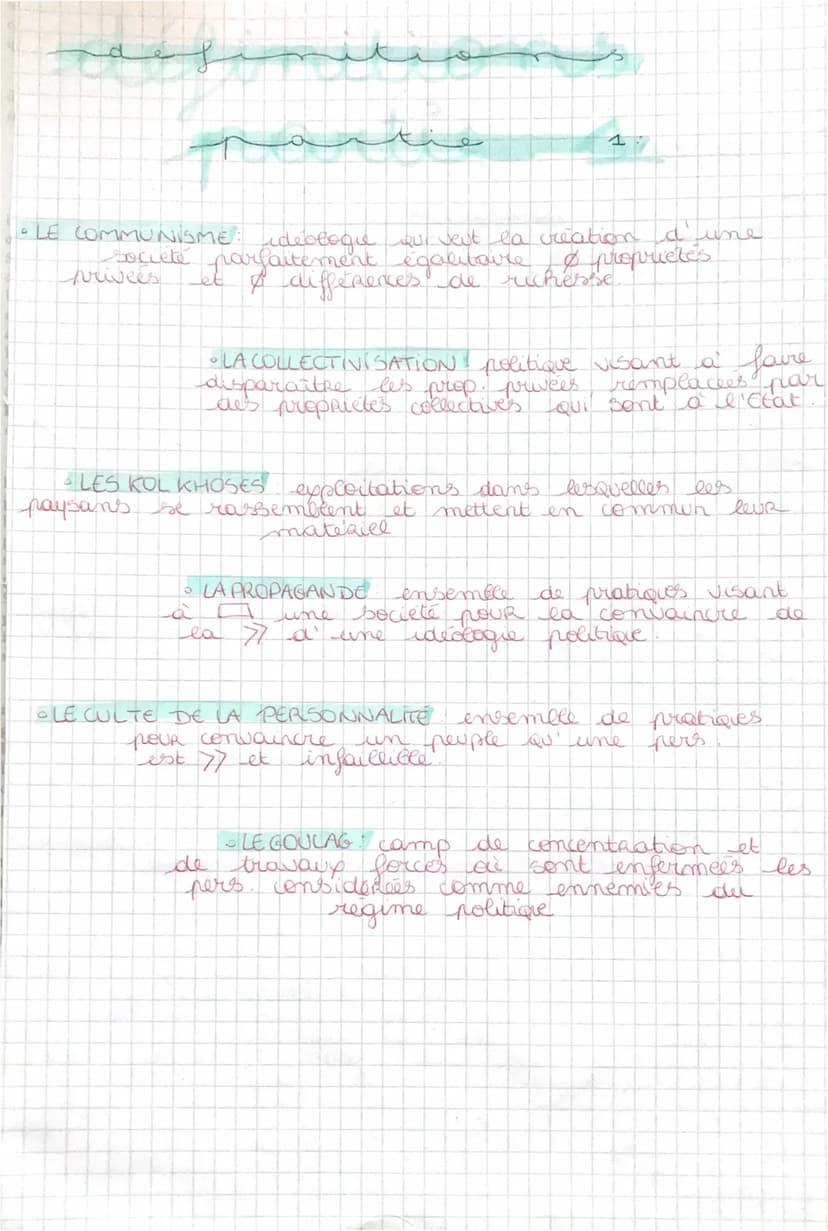 définitions
partie 1:
• LE COMMUNISME: idéologie qui veut la création d'une
société parfaitement égalitaire Ø propriétés
privées et Ø différences de richesse.
• LA COLLECTIVISATION: politique visant à faire
disparaître les prop. privées remplacées par
des propriétés collectives qui sont à l'Etat.
• LES KOLKHOSES exploitations dans lesquelles les
paysans se rassemblent et mettent en commun leur
matériel
• LA PROPAGANDE ensemble de pratiques visant
à une société pour la convaincre de
la >> d'une idéologie politique.
• LE CULTE DE LA PERSONNALITÉ ensemble de pratiques
pour convaincre un peuple qu'une pers.
est >> et infaillible
• LE GOULAG: camp de concentration et
de travaux forcés où sont enfermées les
pers. considérées comme ennemies du
régime politique